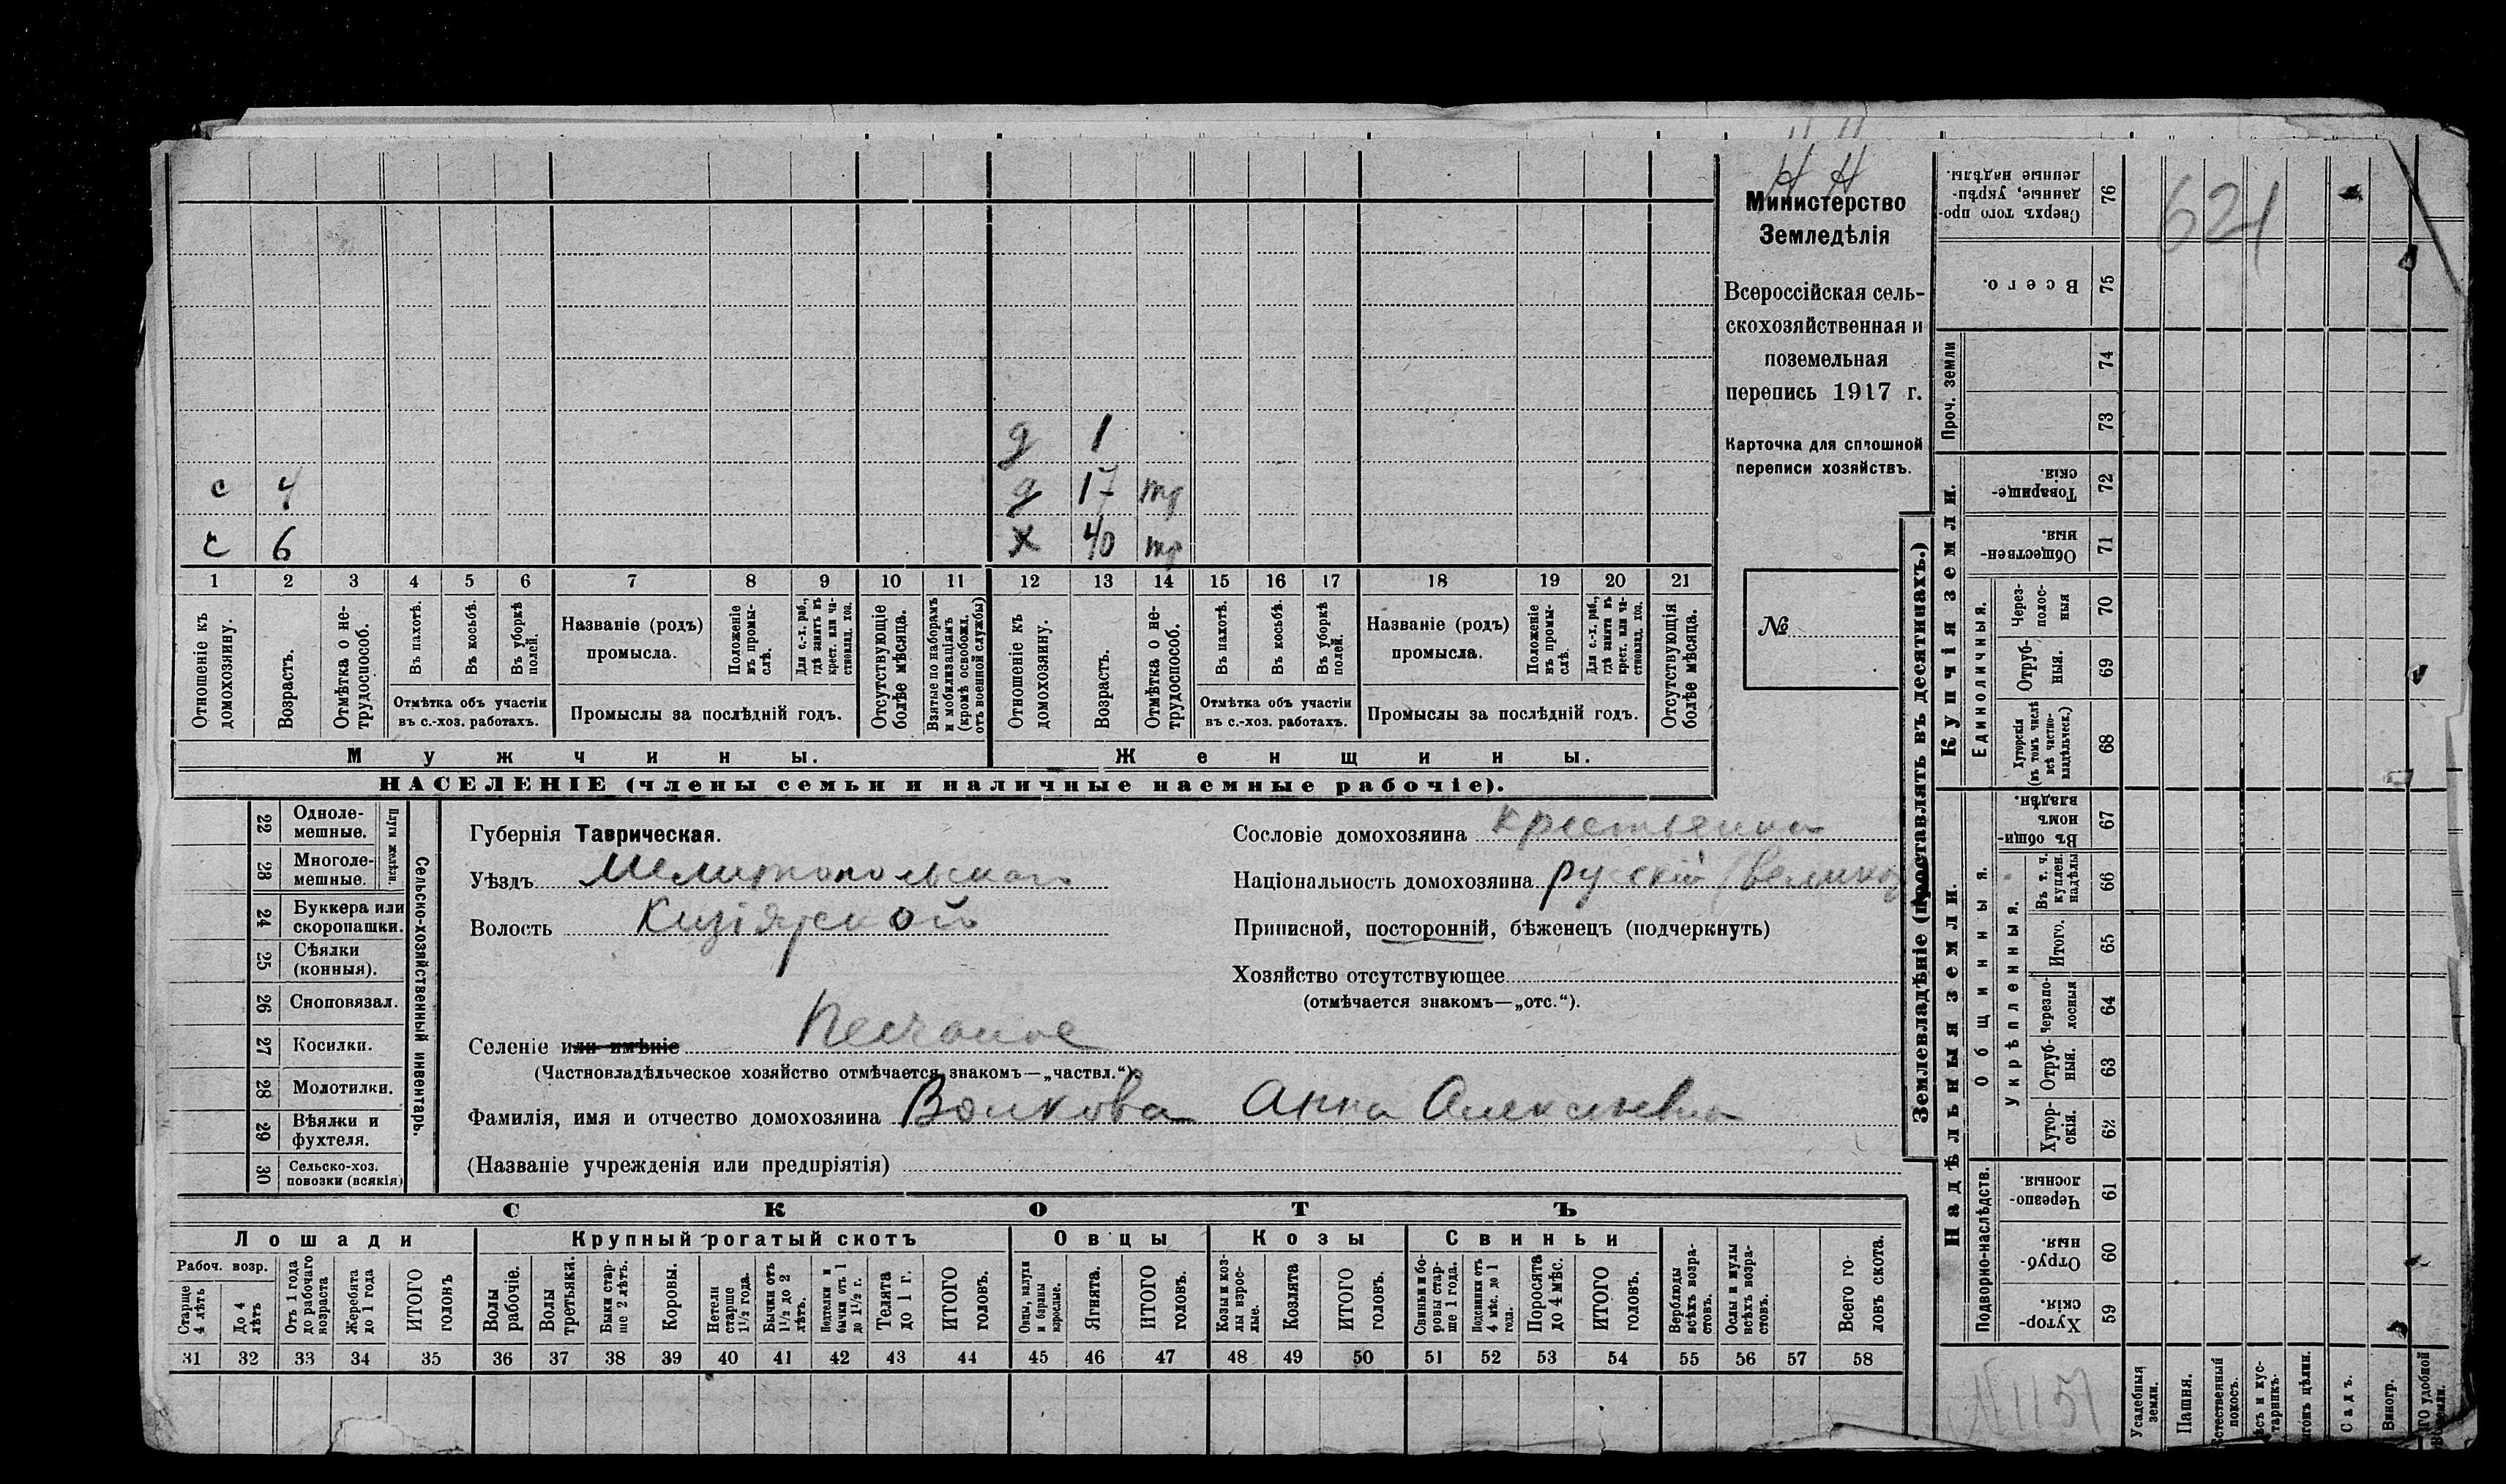 Н Н
Министерство
Земледѣлія
Всероссійская сель-
скохозяйственная и
поземельная
перепись 1917 г.
Карточка для сплошной
переписи хозяйствъ.
№
д 1
с 4 д 17 тр
с 6 х 40 тр
1 2 3 4 5 6 7 8 9 10 11 12 13 14 15 16 17 18 19 20 21
Отношеніе къ домохозяину.
Возрастъ.
Отмѣтка о не-трудоспособ.
Въ пахотѣ.
Въ косьбѣ.
Въ уборкѣ полей.
Отмѣтка объ участіи
въ с.-хоз. работахъ.
Названіе (родъ)
промысла.
Положеніе въ промы-слѣ.
Для с.-х. раб., гдѣ занятъ въ крест. или ча-стновлад. хоз.
Промыслы за послѣдній годъ.
Отсутствующіе болѣе мѣсяца.
Взятые по наборамъ и мобилизаціямъ (кромѣ освобожд. отъ военной службы)
Отношеніе къ домохозяину.
Возрастъ.
Отмѣтка о не-трудоспособ.
Въ пахотѣ.
Въ косьбѣ.
Въ уборкѣ полей.
Отмѣтка объ участіи
въ с.-хоз. работахъ.
Названіе (родъ)
промысла.
Положеніе въ промы-слѣ.
Для с.-х. раб., гдѣ занята въ крест. или ча-стновлад. хоз.
Промыслы за послѣдній годъ.
Отсутствующія болѣе мѣсяца.
Мужчины. Женщины.
НАСЕЛЕНІЕ (члены семьи и наличные наемные рабочіе).
22 Одноле-мешные.
23 Многоле-мешные.
Плуги желѣзн.
24 Буккера или скоропашки.
25 Сѣялки (конныя).
26 Сноповязал.
27 Косилки.
28 Молотилки.
29 Вѣялки и фухтеля.
30 Сельско-хоз. повозки (всякія)
Сельско-хозяйственный инвентарь.
Губернія Таврическая.
Уѣздъ Мелитопольскаго
Волость Кизіярской
Селеніе или имѣніе Песчаное
(Частновладѣльческое хозяйство отмѣчается знакомъ—„частвл.“)
Фамилія, имя и отчество домохозяина Волкова Анна Алексѣевна
(Названіе учрежденія или предпріятія)
Сословіе домохозяина крестьянка
Національность домохозяина русскій (велико
Приписной, посторонній, бѣженецъ (подчеркнуть)
Хозяйство отсутствующее
(отмѣчается знакомъ—„отс.“).
СКОТЪ
Лошади Крупный рогатый скотъ Овцы Козы Свиньи
Рабоч. возр.
Старше 4 лѣтъ
До 4 лѣтъ
Отъ 1 года до рабочаго возраста
Жеребята до 1 года
ИТОГО головъ
Волы рабочіе.
Волы третьяки.
Быки стар-ше 2 лѣтъ.
Коровы.
Нетели старше 1½ года.
Бычки отъ 1½ до 2 лѣтъ.
Подтелки и бычки отъ 1 до 1½ г.
Телята до 1 г.
ИТОГО головъ.
Овцы, валухи и бараны взрослые.
Ягнята.
ИТОГО головъ.
Козы и коз-лы взрос-лые.
Козлята
ИТОГО головъ.
Свиньи и бо-ровы стар-ше 1 года.
Подсвинки отъ 4 мѣс. до 1 года.
Поросята до 4 мѣс.
ИТОГО головъ.
Верблюды всѣхъ возра-стовъ.
Ослы и мулы всѣхъ возра-стовъ.
Всего го-ловъ скота.
31 32 33 34 35 36 37 38 39 40 41 42 43 44 45 46 47 48 49 50 51 52 53 54 55 56 57 58
Землевладѣніе (проставлять въ десятинахъ.)
621
Сверхъ того про-данные, укрѣп-ленные надѣлы. 76
Всего. 75
Проч. земли
74
73
Купчія земли.
Товарище-скія. 72
Обществен-ныя. 71
Единоличныя.
Через-полос-ныя 70
Отруб-ныя. 69
Хуторскія (въ томъ числѣ всѣ частно-владѣльческ.) 68
Надѣльныя земли.
Общинныя.
Въ общи-номъ владѣн. 67
Укрѣпленныя.
Въ т. ч. куплен. надѣлы 66
Итого. 65
Черезпо-лосныя 64
Отруб-ныя. 63
Хутор-скія. 62
Подворно-наслѣдств.
Черезпо-лосныя. 61
Отруб-ныя. 60
Хутор-скія. 59
№ 1151
Усадебныя земли.
Пашня.
Естественный покосъ.
ѣсъ и кус-тарникъ.
гонъ цѣлин.
Садъ.
Виногр.
ГО удобной земли.